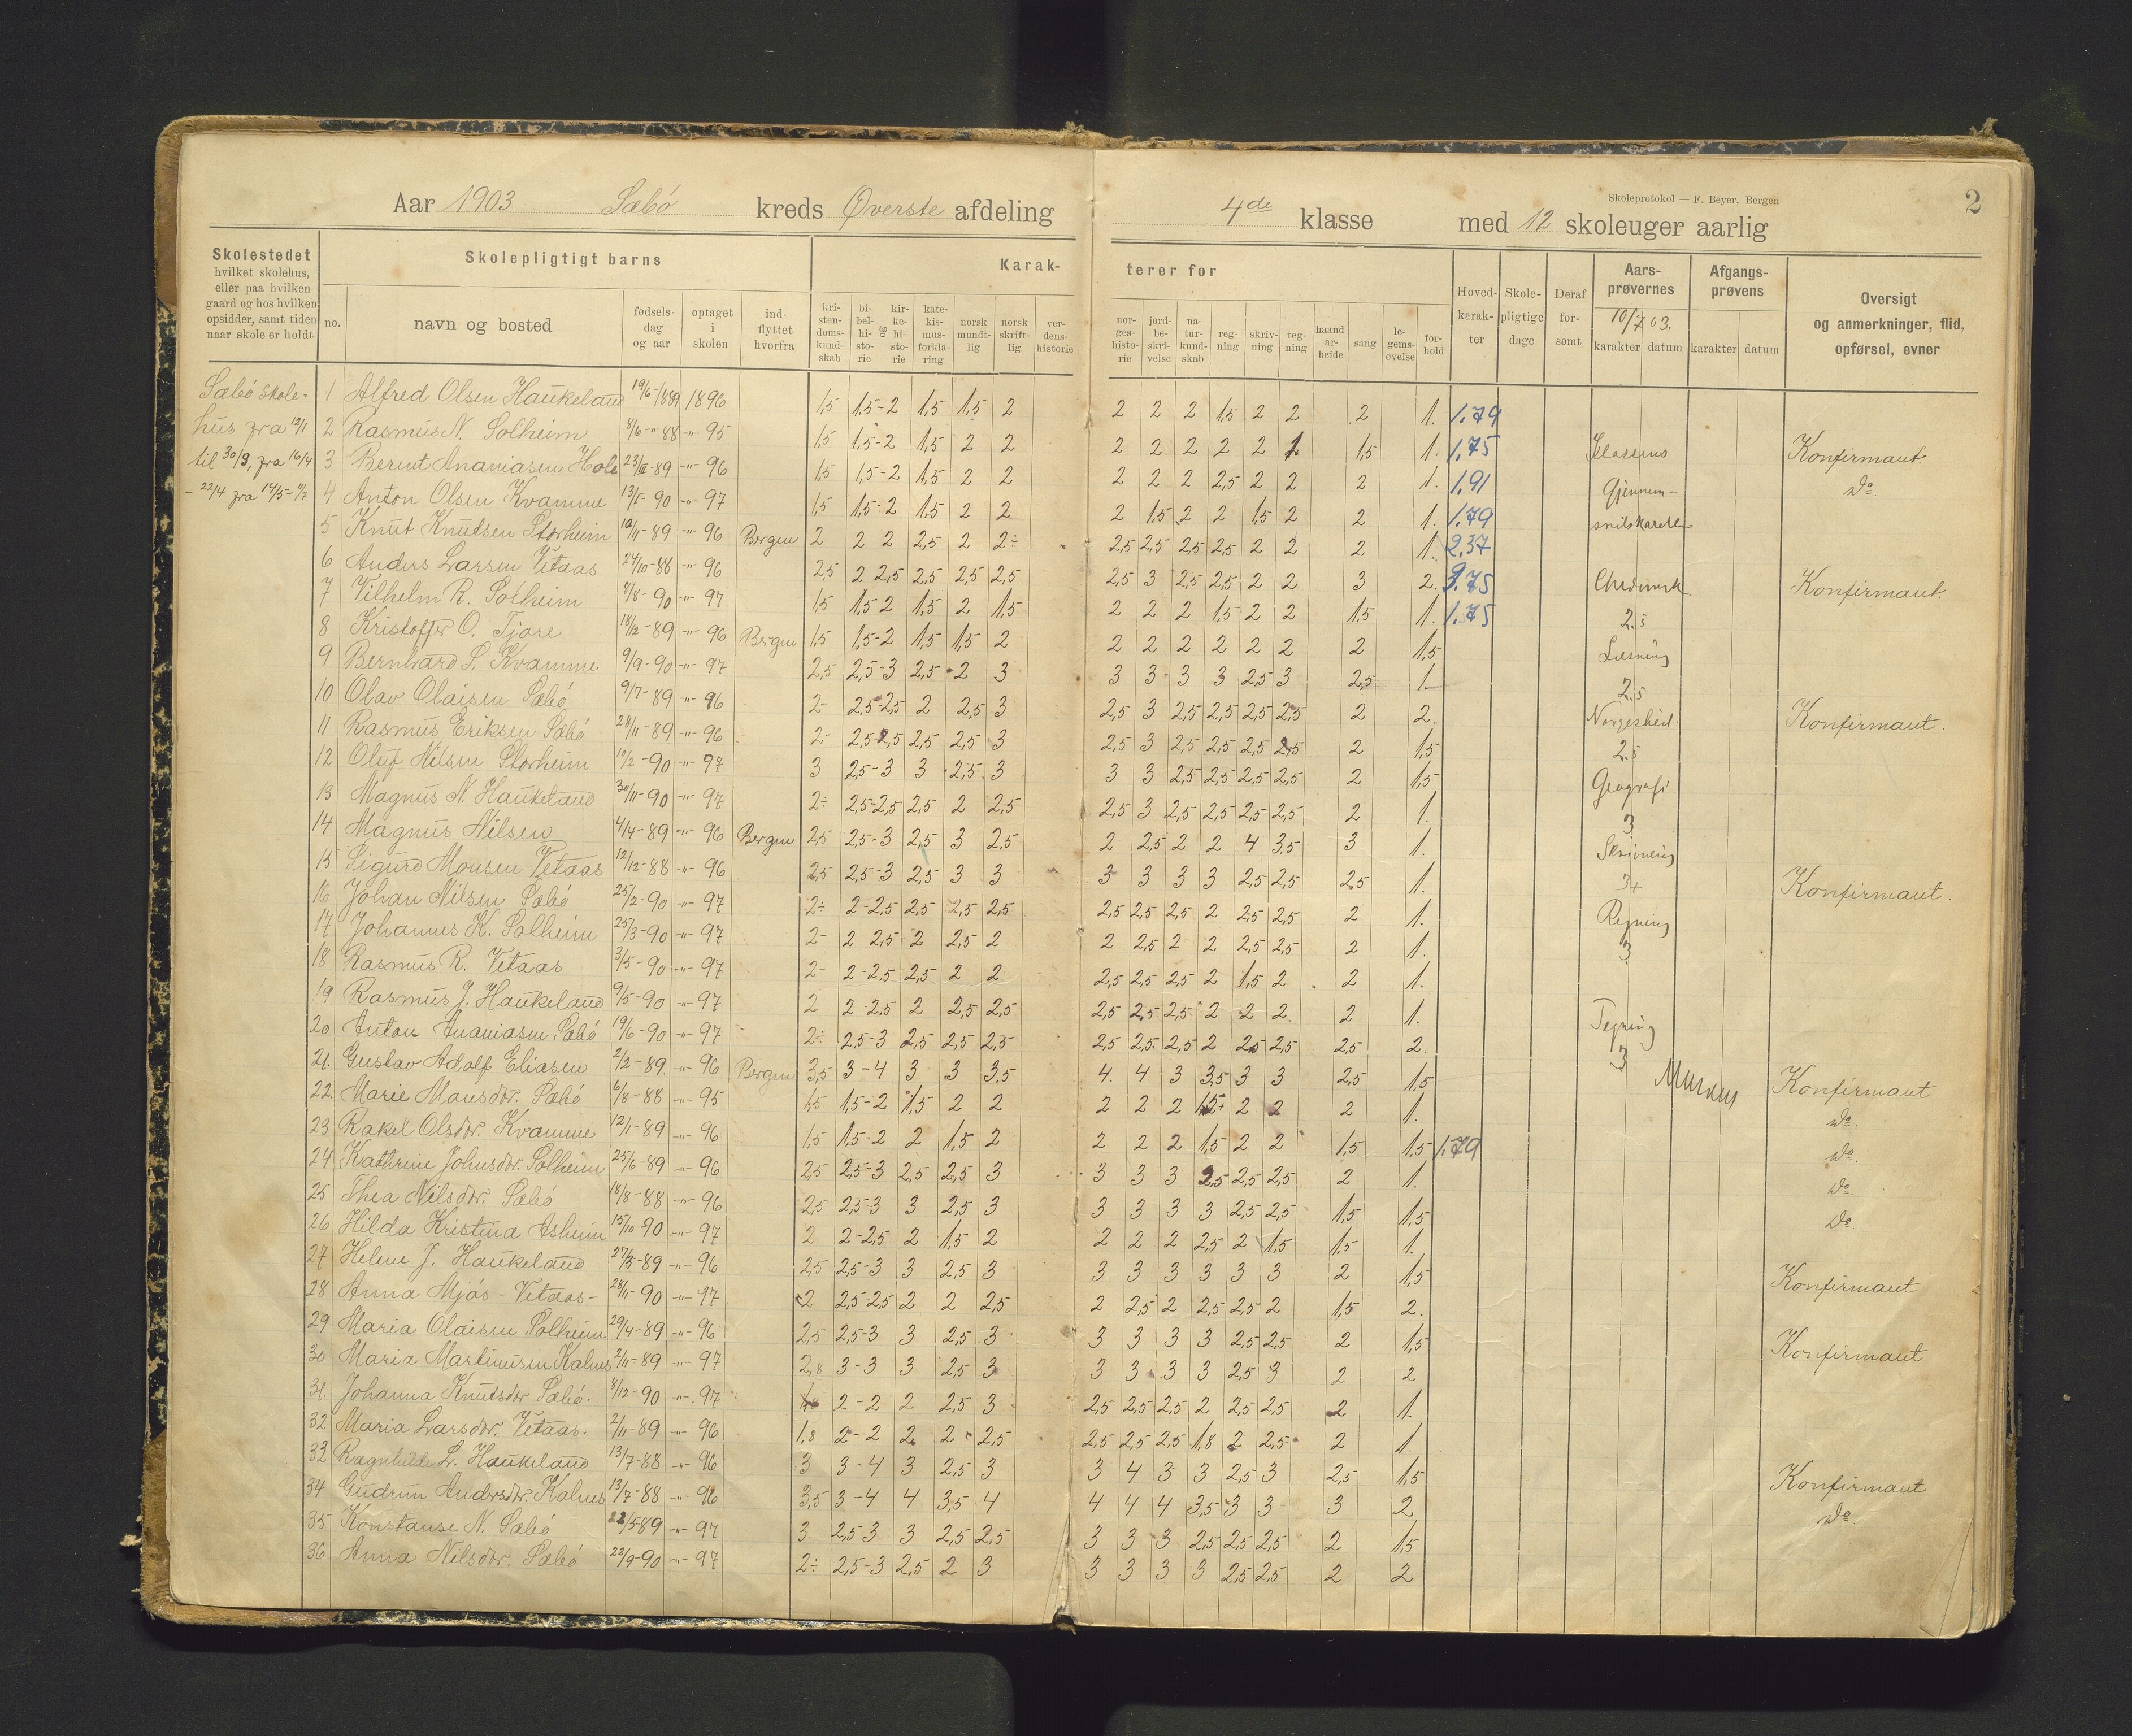 Skoleprotokol — F. Beyer, Bergen
2
Aar 1903 Sæbö kreds Øverste afdeling 4de klasse med 12 skoleuger aarlig
Skolestedet hvilket skolehus, eller paa hvilken gaard og hos hvilken opsidder, samt tiden naar skole er holdt
Skolepligtigt barns
Karakterer for
no. navn og bosted fødselsdag og aar optaget i skolen indflyttet hvorfra
kristendomskundskab bibelhistorie og kirkehistorie katekismusforklaring norsk mundtlig norsk skriftlig verdenshistorie
norgeshistorie jordbeskrivelse naturkundskab regning skrivning tegning haandarbeide sang legemsøvelse forhold
Hovedkarakter Skolepligtige dage Deraf forsømt
Aarsprøvernes 10/7 03. karakter datum
Afgangsprøvens karakter datum
Oversigt og anmerkninger, flid, opførsel, evner
Sæbö skole-
hus fra 12/1
til 30/3, fra 16/4
- 22/4 fra 14/5 - 11/7
1 Alfred Olsen Haukeland 19/6-1889 1896 1,5 1,5-2 1,5 1,5 2 2 2 2 1,5 2 2 2 1. 1.79
2 Rasmus N. Solheim 8/6-"-88 -"-95 1,5 1,5-2 1,5 2 2 2 2 2 2 2 1 1,5 1. 1.75 Konfirmant.
3 Berent Ananiasen Hole 23/3-89 -"-96 1,5 1,5-2 1,5 2 2 2 2 2 2,5 2 2 2 1. 1.91 do.
4 Anton Olsen Kvamme 13/5-90 -"-97 1,5 1,5-2 1,5 2 2 2 1,5 2 2 1,5 2 2 1. 1.79
5 Knut Knudsen Storheim 12/11-89 -"-96 Bergen 2 2 2 2,5 2 2÷ 2,5 2,5 2,5 2,5 2 2 2 1. 2.37
6 Anders Larsen Vetaas 24/10-88. -"-96 2,5 2 2,5 2,5 2,5 2,5 2,5 3 2,5 2,5 2 2 3 2. Konfirmant.
7 Vilhelm R. Solheim 8/8-90 -"-97 1,5 1,5-2 1,5 2 1,5 2 2 2 1,5 2 2 1,5 1. 1.75
8 Kristoffer O. Tjore 18/2-89 -"-96 Bergen 1,5 1,5-2 1,5 1,5 2 2 2 2 2 2 2 2 1,5
9 Bernhard L. Kvamme 9/9-90 -"-97 2,5 2,5-3 2,5 2 3 3 3 3 3 2,5 3 2,5 1.
10 Olav Olaisen Sæbö 9/7-89 -"-96 2- 2,5-2,5 2 2,5 3 2,5 3 2,5 2,5 2,5 2,5 2 2. Konfirmant.
11 Rasmus Eriksen Sæbö 28/11-89 -"-96 2- 2,5-2,5 2,5 2,5 3 2,5 3 2,5 2,5 2,5 2,5 2 1,5
12 Oluf Nilsen Storheim 10/2-90 -"-97 3 2,5-3 3 2,5 3 3 3 2,5 2,5 2,5 2,5 2 1,5
13 Magnus N. Haukeland 30/11-90 -"-97 2÷ 2,5-2,5 2,5 2 2,5 2,5 3 2,5 2,5 2,5 2,5 2 1.
14 Magnus Nilsen 4/4-89 -"-96 Bergen 2,5 2,5-3 2,5 3 2,5 2 2,5 2 2 4 3,5 3 1.
15 Sigurd Monsen Vetaas 12/12-88 -"-96 2,5 2,5-3 2,5 3 3 3 3 3 3 2,5 2,5 2,5 1. Konfirmant.
16 Johan Nilsen Sæbö 25/2-90 -"-97 2÷ 2-2,5 2,5 2,5 2,5 2,5 2,5 2,5 2 2,5 2,5 2 1.
17 Johannes K. Solheim 25/3-90 -"-97 2- 2 2,5 2 2,5 2 2 2,5 2 2 2,5 2,5 2 1.
18 Rasmus R. Vetaas 3/5-90 -"-97 2- 2-2,5 2,5 2 2 2,5 2,5 2,5 2 1,5 2 2 1.
19 Rasmus J. Haukeland 9/5-90 -"-97 2 2-2,5 2 2,5 2,5 2,5 2,5 2,5 2 2 2 2 1.
20 Anton Ananiasen Sæbö 19/6-90 -"-97 2÷ 2,5-3 2,5 2,5 2,5 2,5 2,5 2,5 2 2,5 2,5 2,5 2.
21. Gustav Adolf Eliasen 2/2-89. -"-96 Bergen 3,5 3-4 3 3 3,5 4. 4 3 3,5 3 3 2,5 1,5 Konfirmant
22. Marie Mansdtr. Sæbö 6/8-88 -"-95 1,5 1,5-2 1,5 2 2 2 2 2 1,5 2 2 2 1. do.
23 Rakel Olsdtr. Kvamme 12/1-89 -"-96 1,5 1,5-2 2 1,5 2 2 2 2 1,5 2 2 1,5 1,5 1.79 do.
24 Kathrine Johnsdtr. Solheim 25/6-89 -"-96 2,5 2,5-3 2,5 2,5 3 3 3 3 2,5 2,5 2,5 2 1. do.
25 Thea Nilsdtr. Sæbö 18/8-88 -"-96 2,5 2,5-3 3 2,5 3 3 3 3 3 2,5 2,5 1,5 1,5 do.
26 Hilda Kristina Asheim 15/10-90 -"-97 2 2-2,5 2 1,5 2 2 2 2 2,5 2 1,5 1,5 1.
27 Helene J. Haukeland 27/3-89 -"-96 2,5 2,5-3 3 2,5 3 3 3 3 3 3 3 2 1,5 Konfirmant
28 Anna Mjös - Vetaas - 28/11-90 -"-97 2 2,5-2,5 2 2 2,5 2 2,5 2 2,5 2,5 2 1,5 2.
29 Maria Olaisen Solheim 29/4-89 -"-96 2,5 2,5-3 3 2,5 3 3 3 3 3 2,5 2,5 2 1,5 Konfirmant
30 Maria Martinusen Kalnes 2/11-89 -"-97 2,8 3-3 3 2,5 3 3 3 3 3 2,5 3 2 2
31. Johanna Knutsdtr Sæbö. 8/12-90 -"-97 2-2 2 2,5 3 2,5 2,5 2,5 2 2,5 2,5 2 1.
32 Maria Larsdtr. Vetaas. 2/11-89 -"-96 1,8 2-2 2 2 2,5 2,5 2,5 2,5 1,8 2 2,5 2 1.
33 Ragnhilde L. Haukeland 13/7-88 -"-96 3 3-4 3 2,5 3 3 4 3 3 2,5 3 2,5 1,5 Konfirmant
34 Gudrun Andersdtr. Kalnes 13/7-88 -"-96 3,5 3-4 4 3,5 4 4 4 4 3,5 3 3 3 2 do.
35 Konstanse N. Sæbö 22/5-89 -"-97 3 2,5 3 3 2,5 2,5 3 3 3 2,5 2,5 2,5 2 1,5
36 Anna Nilsdtr. Sæbö 22/9-90 -"-97 2÷ 2,5-3 2,5 2 3 3 3 3 3 2,5 2,5 2 2
Klassens
Gjennem-
snitskarakter
2.5
Læsning
2.5
2.5
Geografi
3
Skrivning
3+
Regning
3
Tegning
3